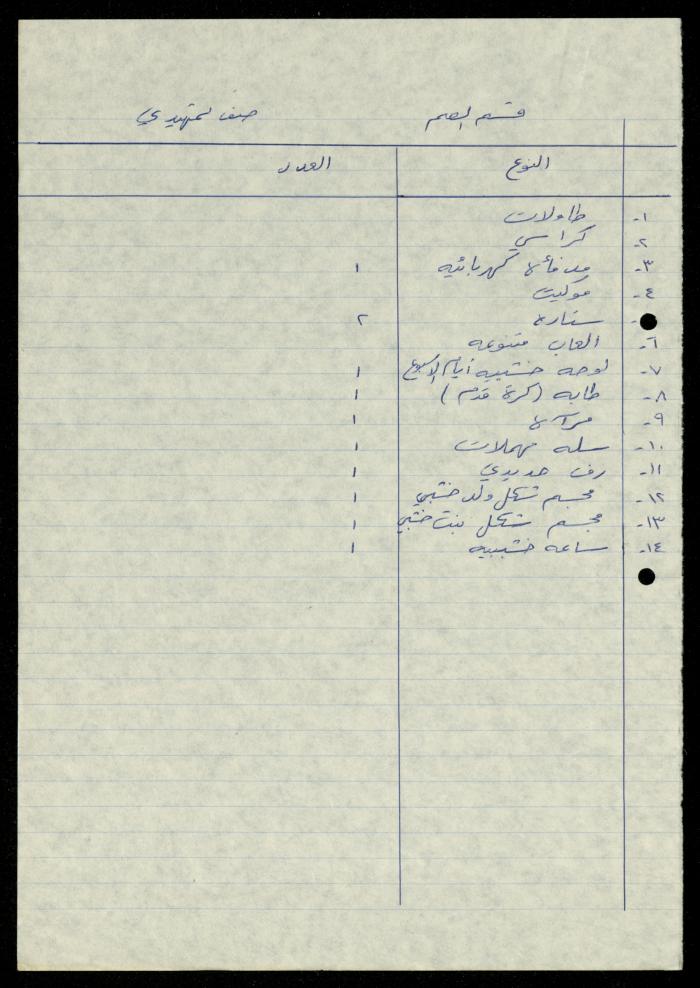 قسم الصم صف تمهيدي
النوع العدد
١- طاولات
٢- كراسي
٣- مدفأة كهربائيه ١
٤- موكيت
- ستارة ٢
٦- العاب متنوعه
٧- لوحه خشبيه أيام الاسبوع ١
٨- طابه (كرة قدم) ١
٩- مرآة ١
١٠- سله مهملات ١
١١- رف حديدي ١
١٢- مجسم شكل ولد خشبي ١
١٣- مجسم شكل بنت خشبي ١
١٤- ساعه خشبيه ١